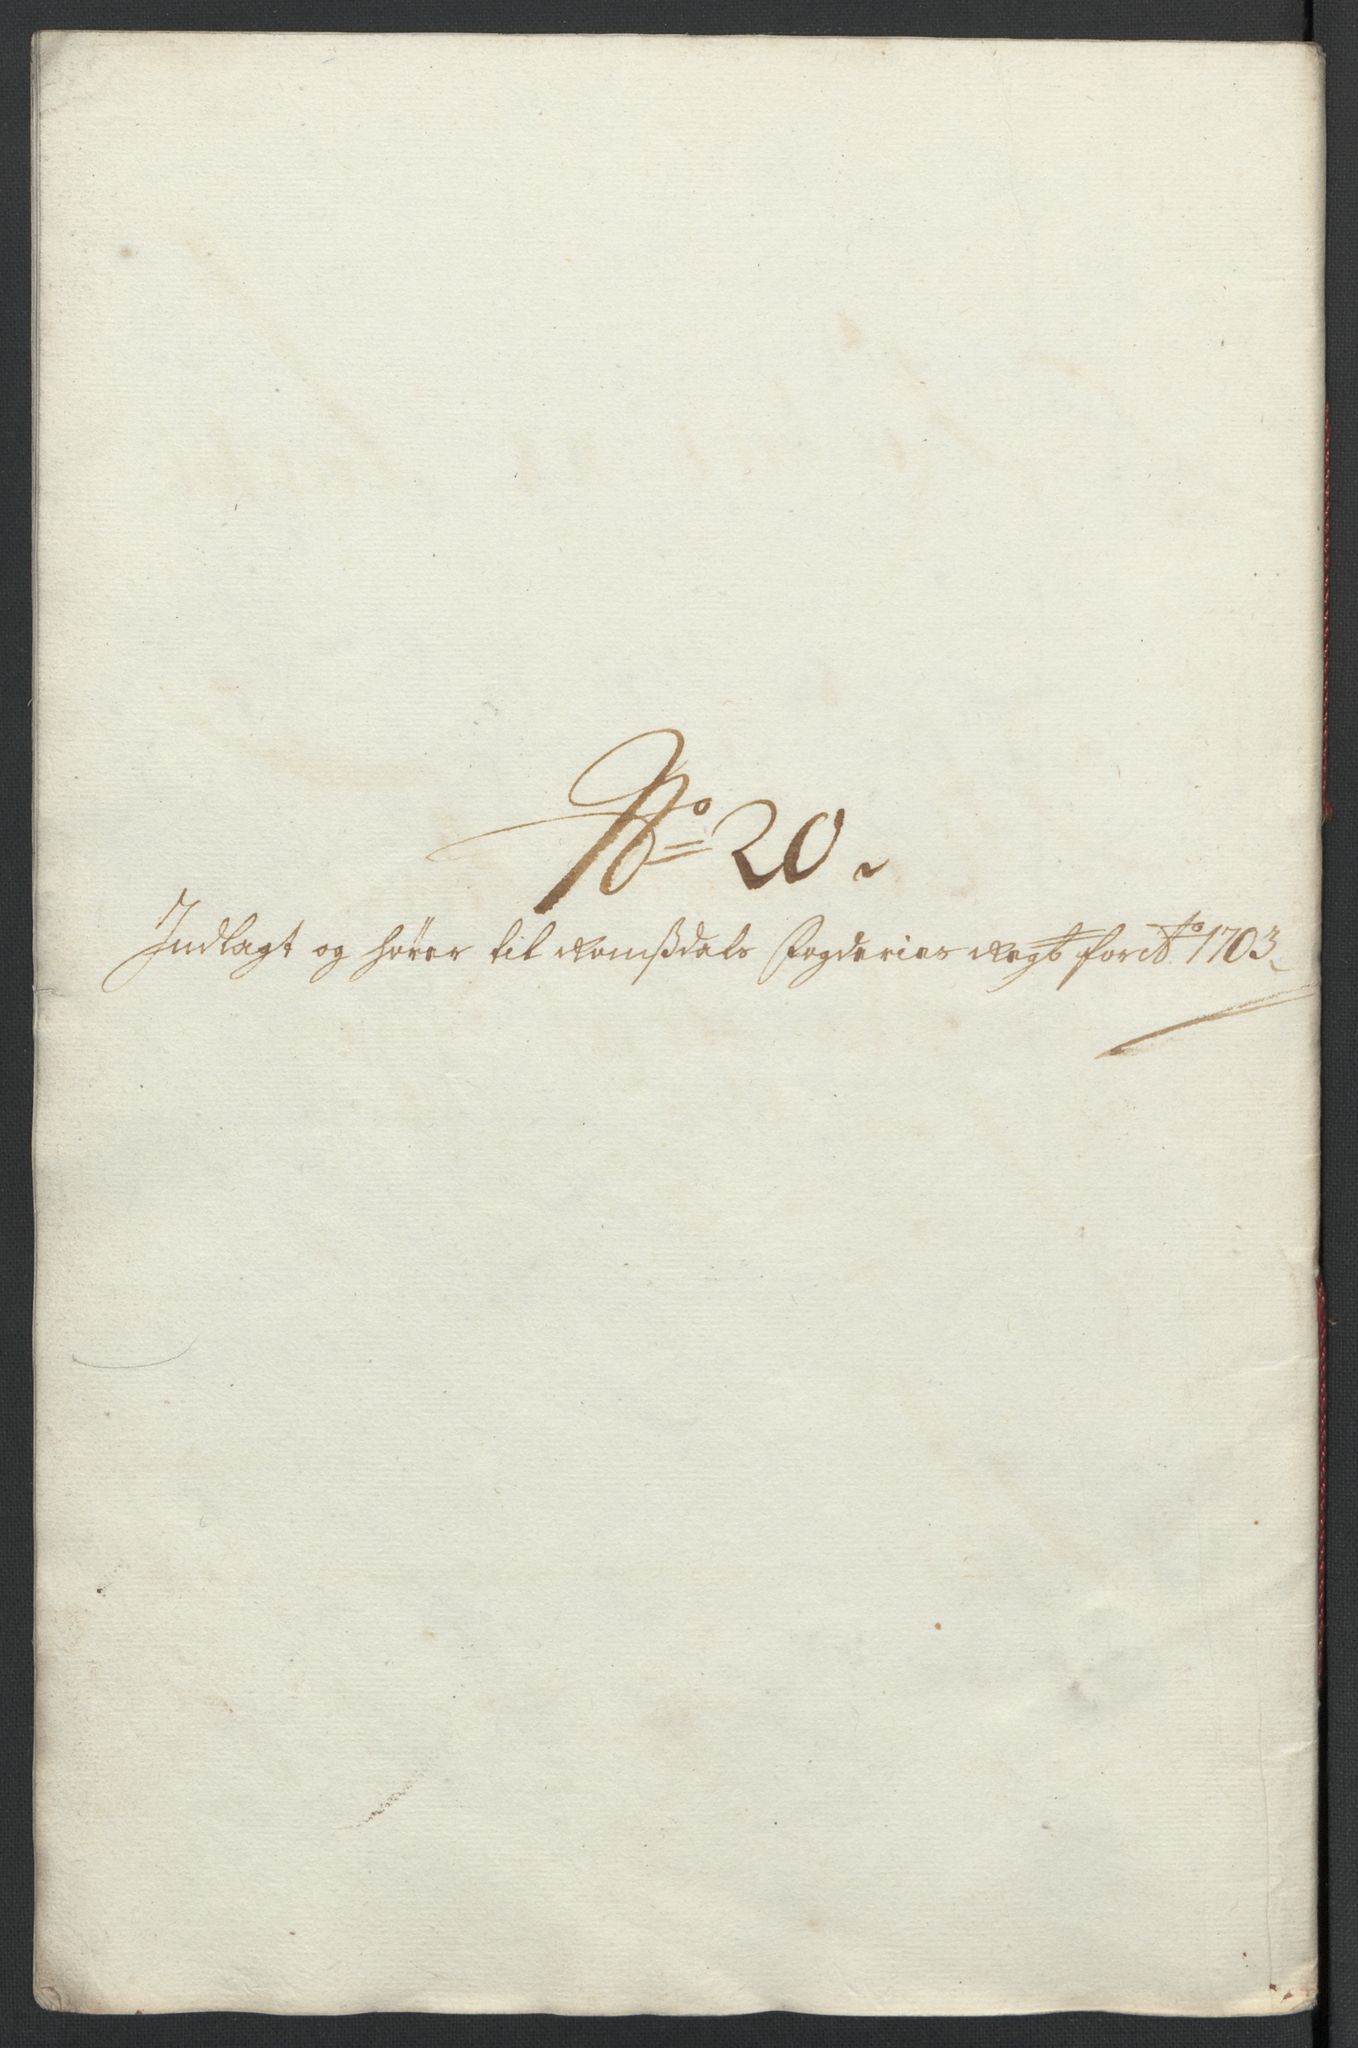 No 20.
Indlagt og hörer til Romßdals Fogderies Regt for Ao 1703